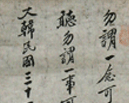 勿謂一念可
聽勿謂一事可
大韓民國三十一